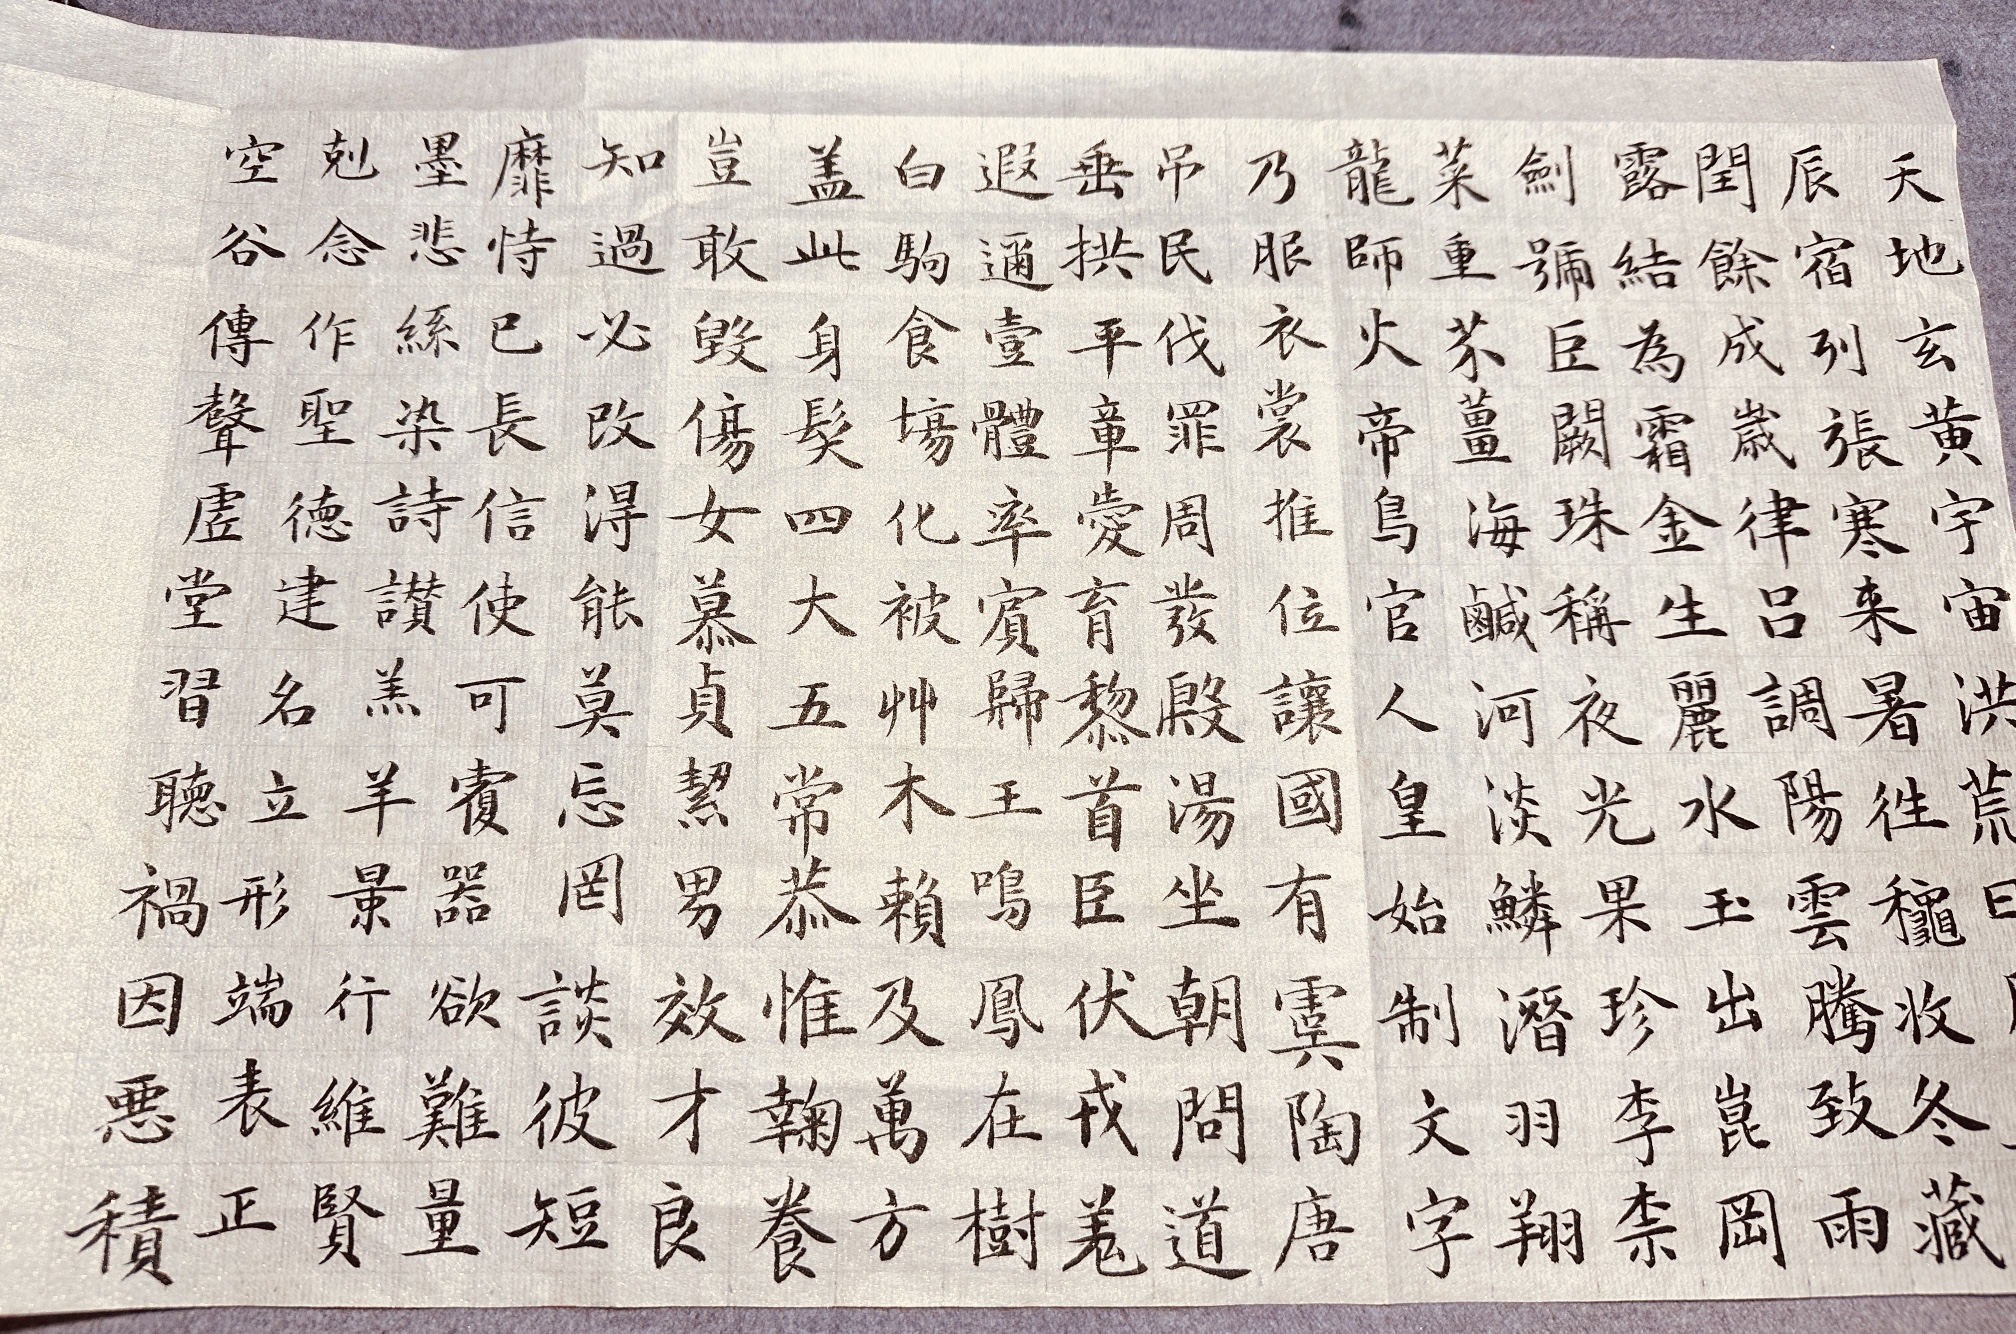 天地玄黄宇宙洪荒日
辰宿列張寒来暑徃穐收冬藏
閏餘成歲律呂調陽雲騰致雨
露結為霜金生麗水玉出崑岡
劍號巨闕珠稱夜光果珍李柰
菜重芥薑海鹹河淡鱗潛羽翔
龍師火帝鳥官人皇始制文字
乃服衣裳推位讓國有虞陶唐
吊民伐罪周發殷湯坐朝問道
垂拱平章愛育黎首臣伏戎羌
遐邇壹體率賓歸王鳴鳳在樹
白駒食場化被艸木賴及萬方
盖此身髮四大五常恭惟鞠養
豈敢毀傷女慕貞絜男效才良
知過必改得能莫忘罔談彼短
靡恃己長信使可覆器欲難量
墨悲絲染詩讃羔羊景行維賢
剋念作聖徳建名立形端表正
空谷傳聲虛堂習聽禍因悪積